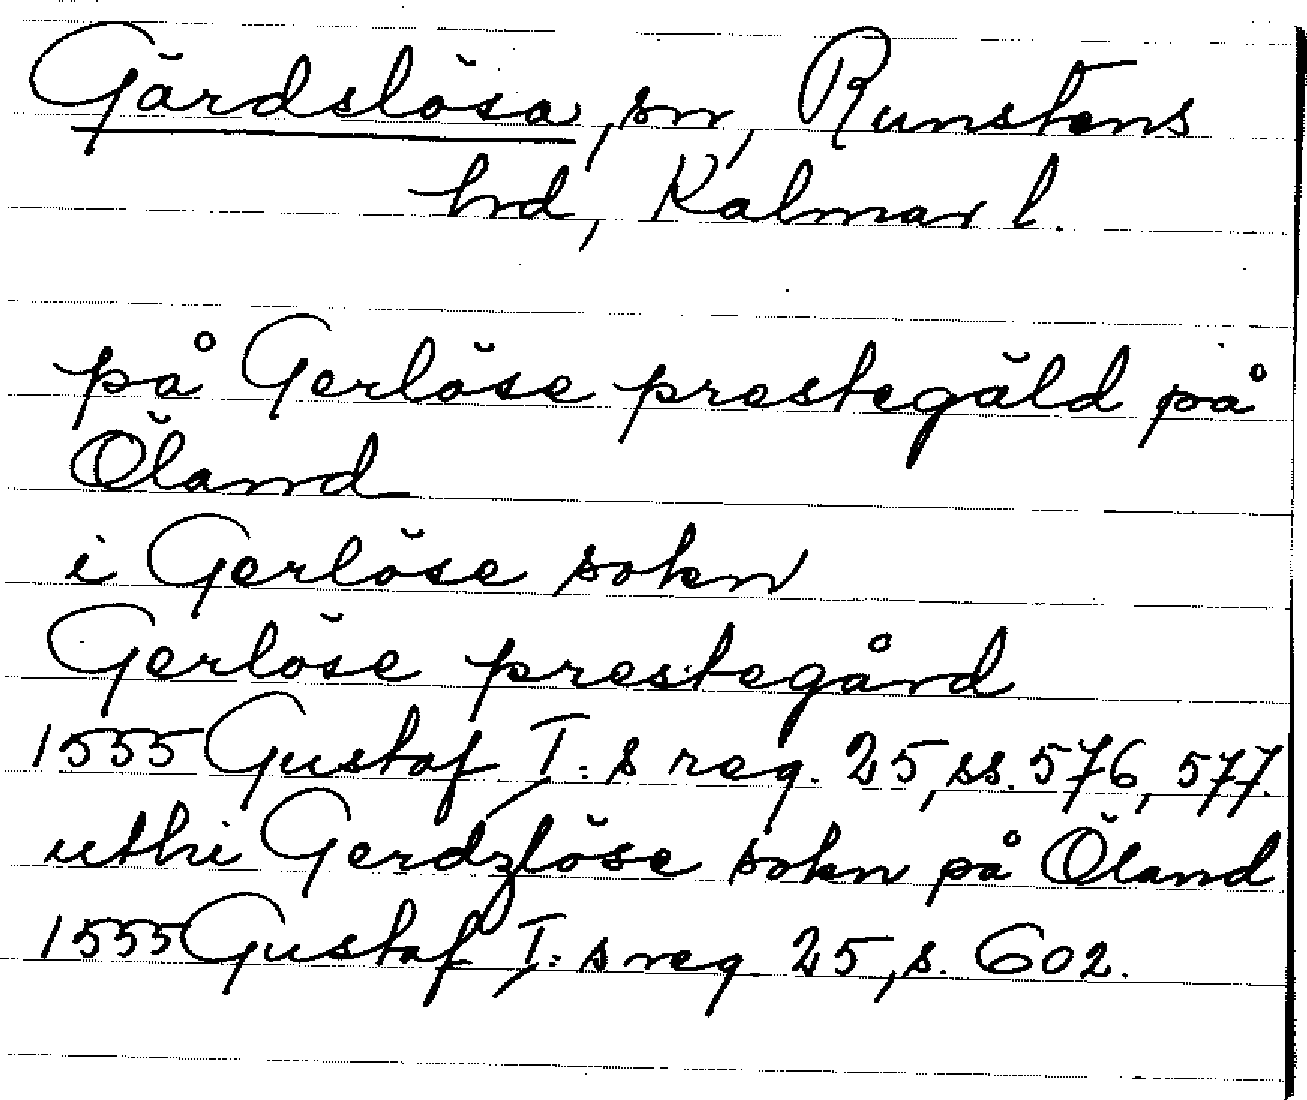 Gärdslösa, sn, Runstens
hd, Kalmar l.
på Gerlöse prestegäld på
Öland
i Gerlöse sokn
Gerlöse prestegård
1555 Gustaf I:s reg. 25, ss. 576, 577.
uthi Gerdzlöse sokn på Öland
1555 Gustaf I:s reg. 25, s. 602.